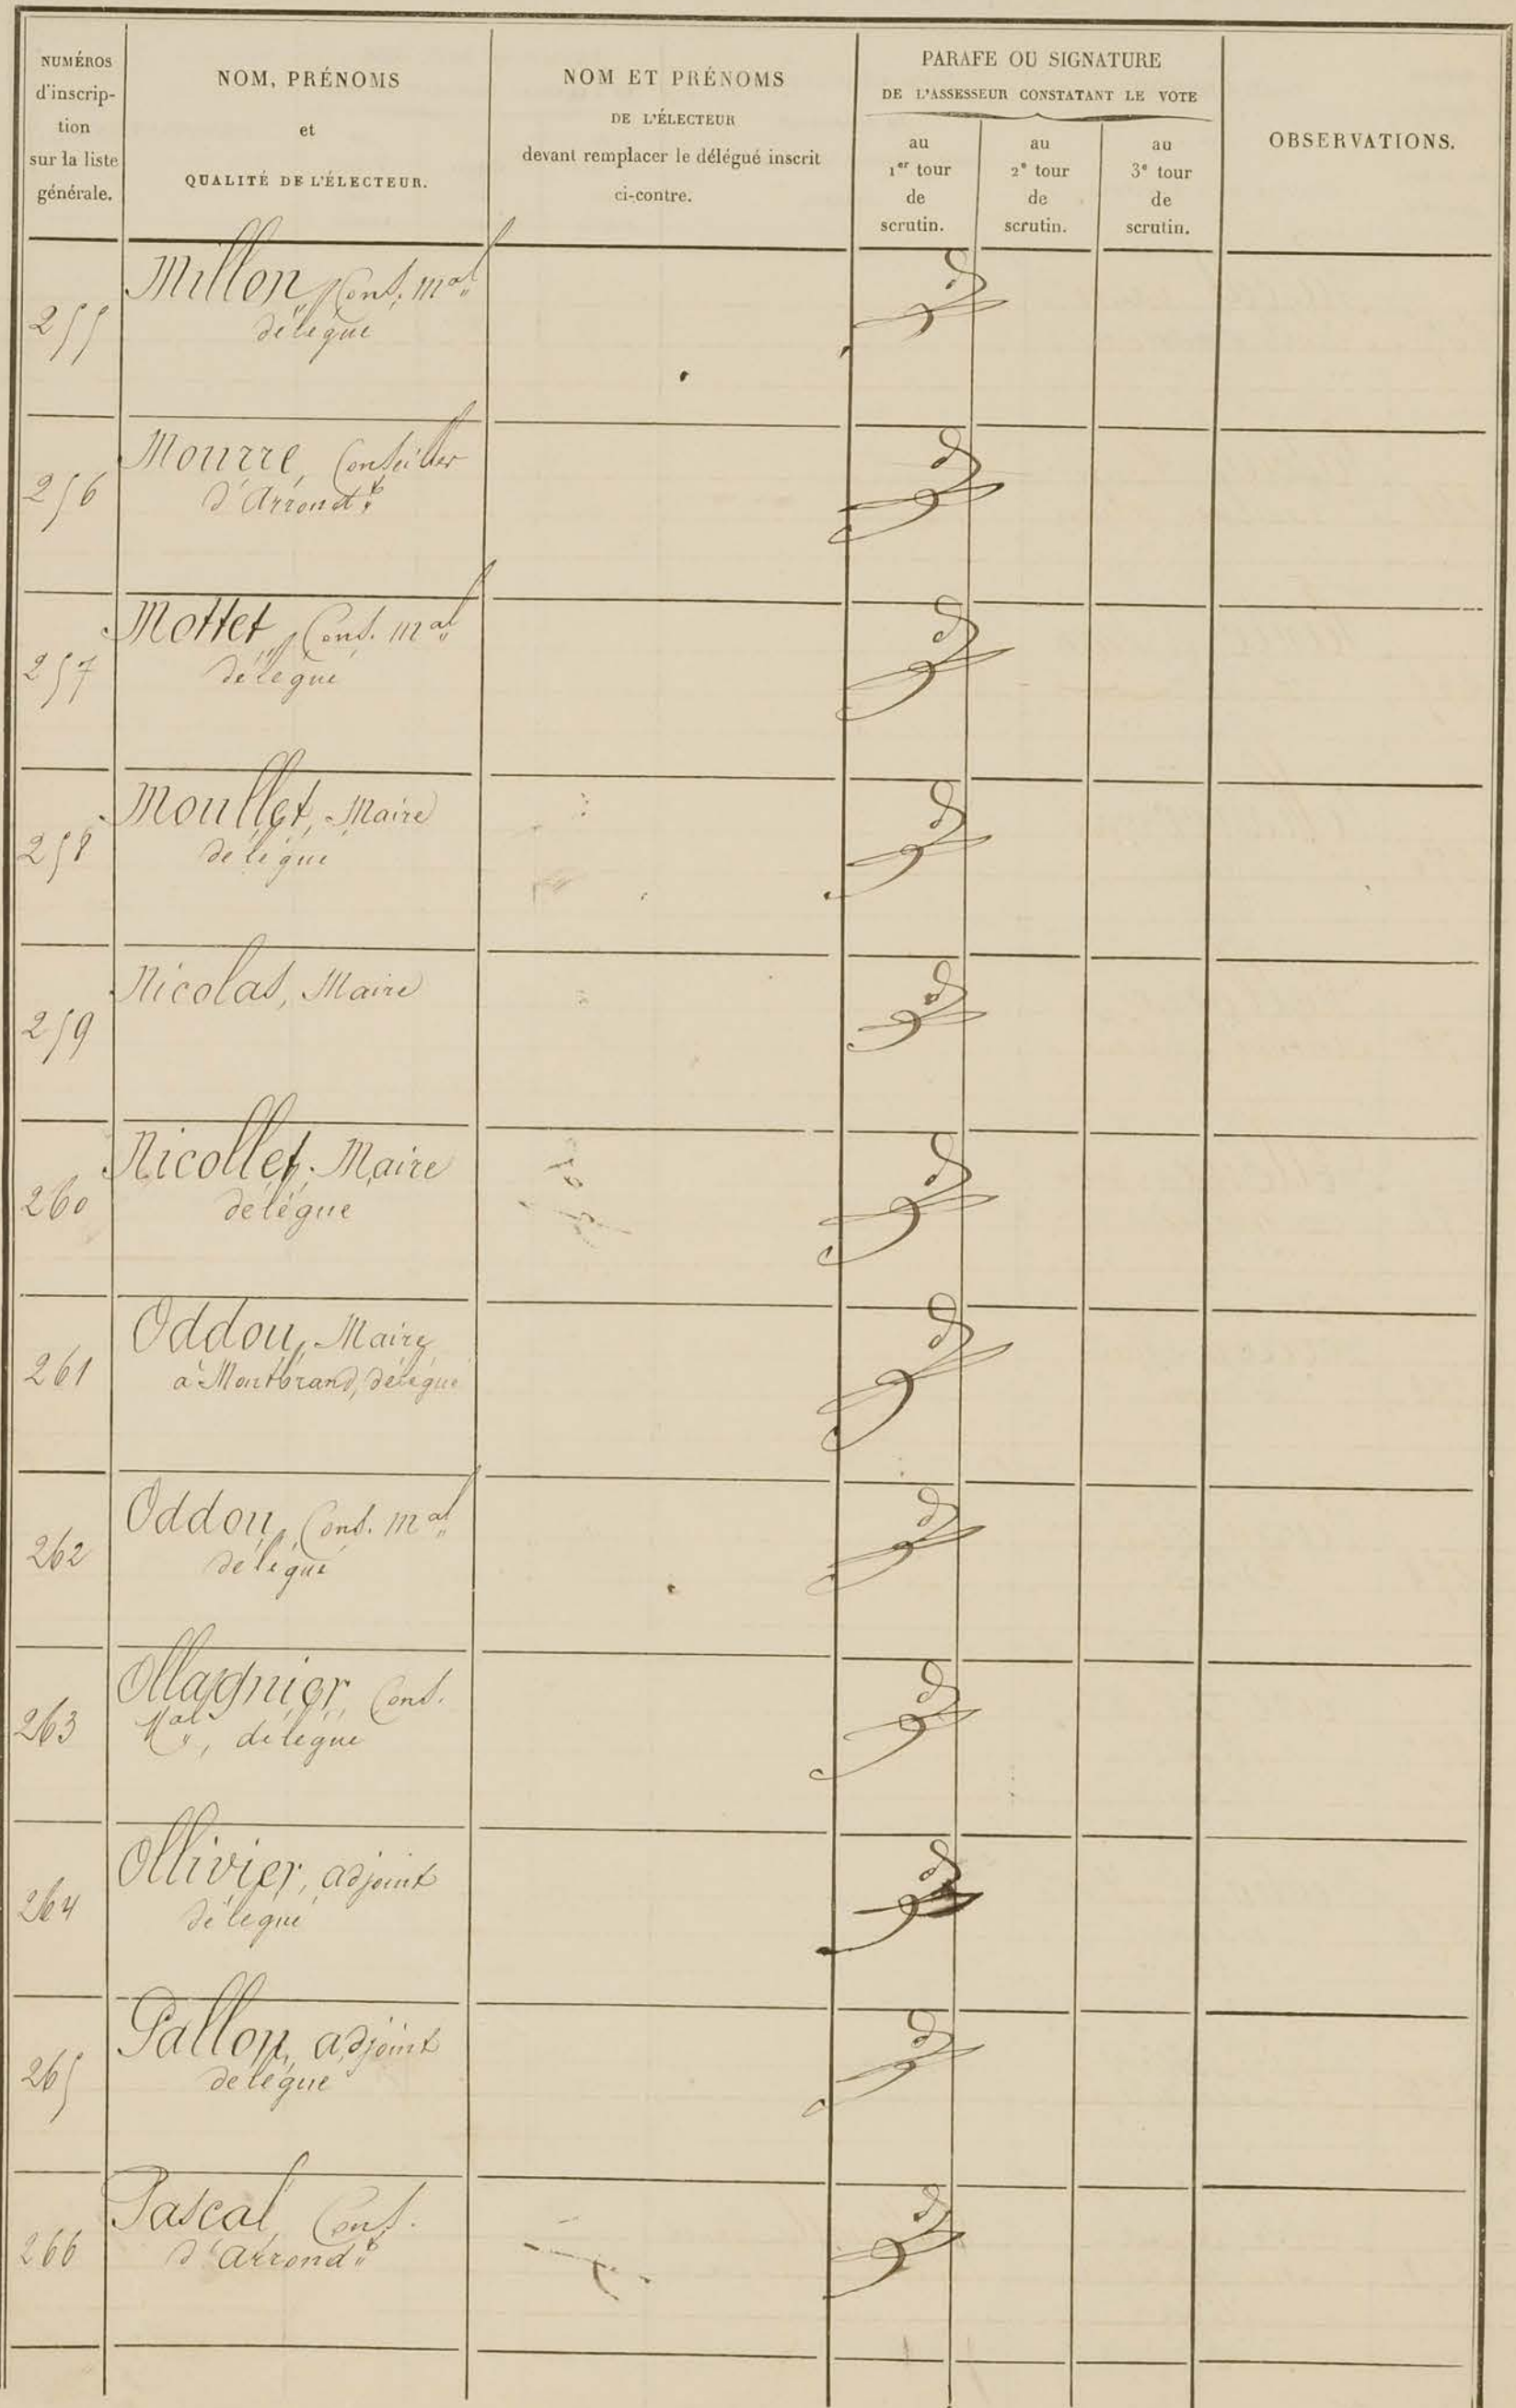 NUMÉROS
d'inscrip-
tion
sur la liste
générale.
NOM, PRÉNOMS
et
QUALITÉ DE L'ÉLECTEUR.
NOM ET PRÉNOMS
DE L'ÉLECTEUR
devant remplacer le délégué inscrit
ci-contre.
PARAFE OU SIGNATURE
DE L'ASSESSEUR CONSTATANT LE VOTE
au
1er tour
de
scrutin.
au
2e tour
de
scrutin.
au
3e tour
de
scrutin.
OBSERVATIONS.
255
Millon, Cons. mal
délégué
256
Mourre, Conseiller
d'Arrondt
257
Mottet, Cons. mal
délégué
258
Moullet, Maire
délégué
259
Nicolas, Maire
260
Nicollet, Maire
délégué
261
Oddou, Maire
à Montbrand, délégué
262
Oddou, Cons. mal
délégué
263
Ollagnier, Cons.
Mal, délégué
264
Ollivier, adjoint
délégué
265
Pallon, adjoint
délégué
266
Pascal, Cons.
d'Arrondt